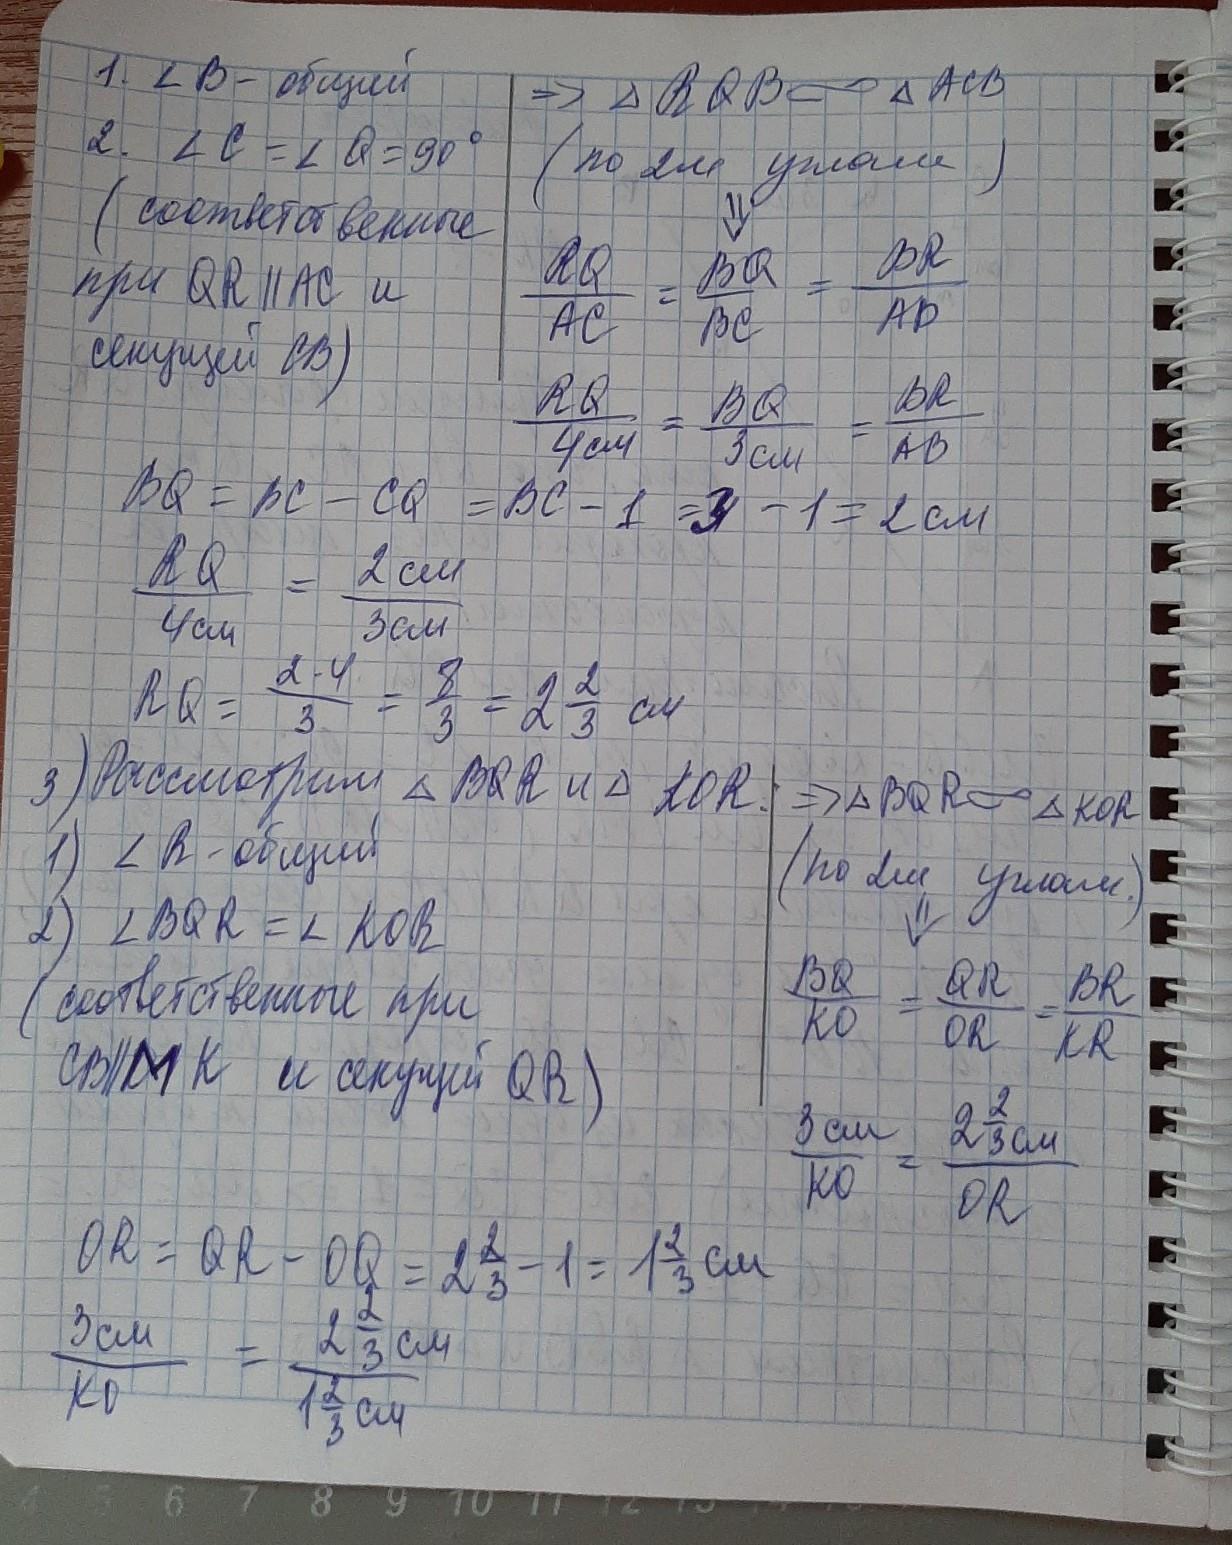 1. ∠B - общий
2. ∠C = ∠Q = 90°
(соответственные
при QR || AC и
секущей CB)
=> △ RQB ∽ △ ACB
(по 2м углам)
⇓
RQ/AC = BQ/BC = BR/AB
RQ/4см = BQ/3см = BR/AB
BQ = BC - CQ = BC - 1 = 3 - 1 = 2 см
RQ/4см = 2см/3см
RQ = 2·4/3 = 8/3 = 2 2/3 см
3) Рассмотрим △ BQR и △ KOR.
1) ∠R - общий
2) ∠BQR = ∠KOR
(соответственные при
CB||MK и секущей QR)
=> △BQR ∽ △KOR
(по 2м углам.)
⇓
BQ/KO = QR/OR = BR/KR
3см/KO = 2 2/3 см/OR
OR = QR - OQ = 2 2/3 - 1 = 1 2/3 см
3см/KO = 2 2/3 см/1 2/3 см
4 5 6 7 8 9 10 11 12 13